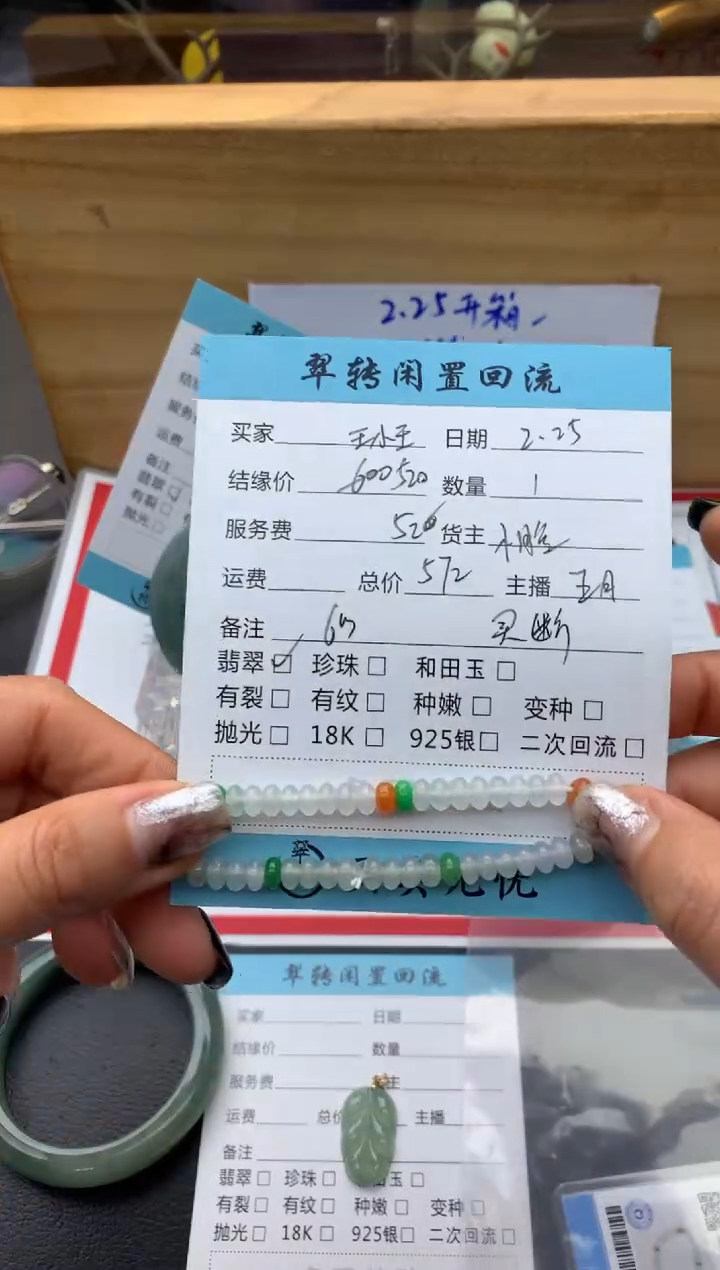 2.25开箱
翠转闲置回流
买家 王小玉 日期 2.25
结缘价 600 520 数量 1
服务费 52 货主
运费 总价 572 主播 五月
备注 买断
翡翠☑ 珍珠□ 和田玉□
有裂□ 有纹□ 种嫩□ 变种□
抛光□ 18K□ 925银□ 二次回流□
翠
无忧
翠转闲置回流
买家 日期
结缘价 数量
服务费 主
运费 总价 主播
备注
翡翠□ 珍珠□ 田玉□
有裂□ 有纹□ 种嫩□ 变种□
抛光□ 18K□ 925银□ 二次回流□